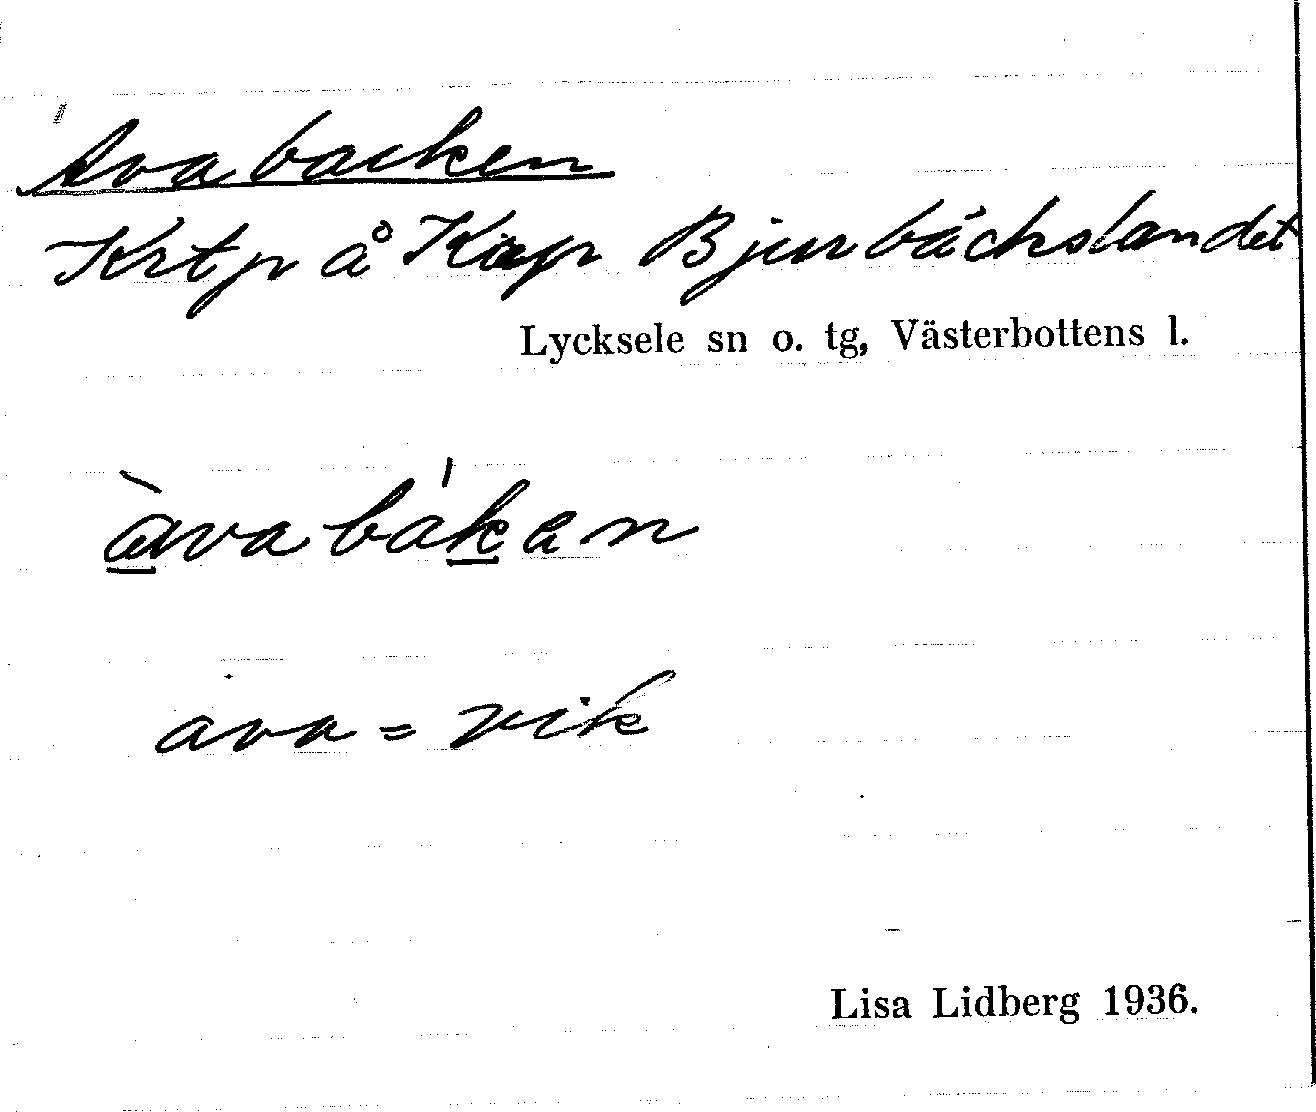 Avabacken
Krtp å Krp Bjurbäckslandet
Lycksele sn o. tg, Västerbottens l.
àvabákan
ava = vik
Lisa Lidberg 1936.